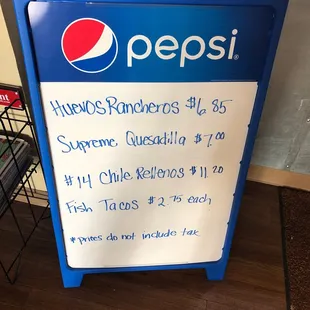 pepsi
Huevos Rancheros $6.85
Supreme Quesadilla $7.00
#14 Chile Rellenos $11.20
Fish Tacos $2.75 each
*prices do not include tax